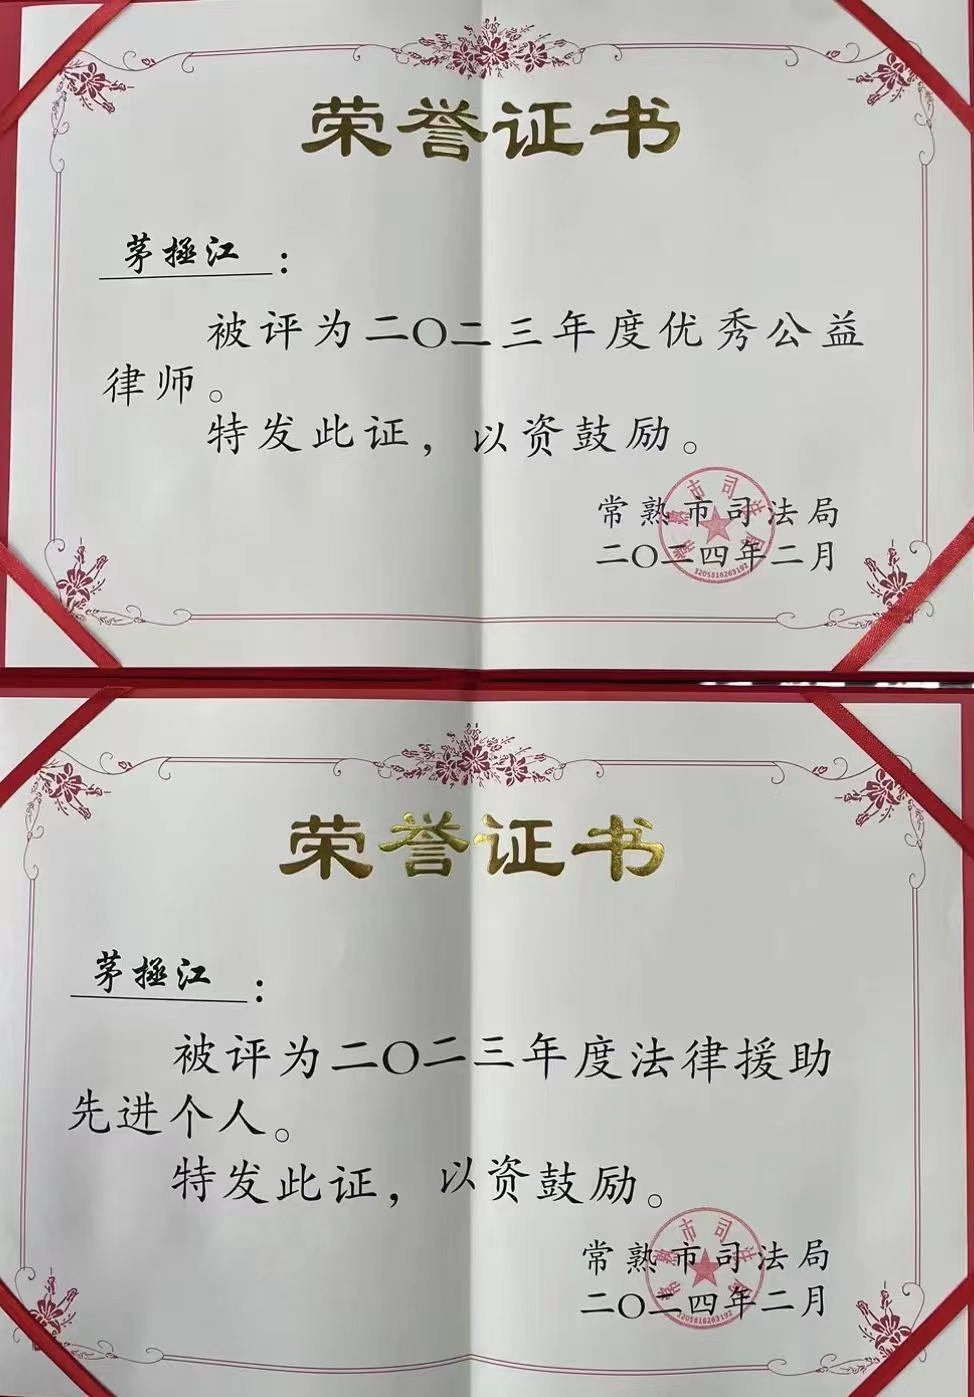 荣誉证书
茅拯江：
被评为二〇二三年度优秀公益
律师。
特发此证，以资鼓励。
常熟市司法局
二〇二四年二月
常熟市司法局
3205816263192
荣誉证书
茅拯江：
被评为二〇二三年度法律援助
先进个人。
特发此证，以资鼓励。
常熟市司法局
二〇二四年二月
常熟市司法局
3205816263192